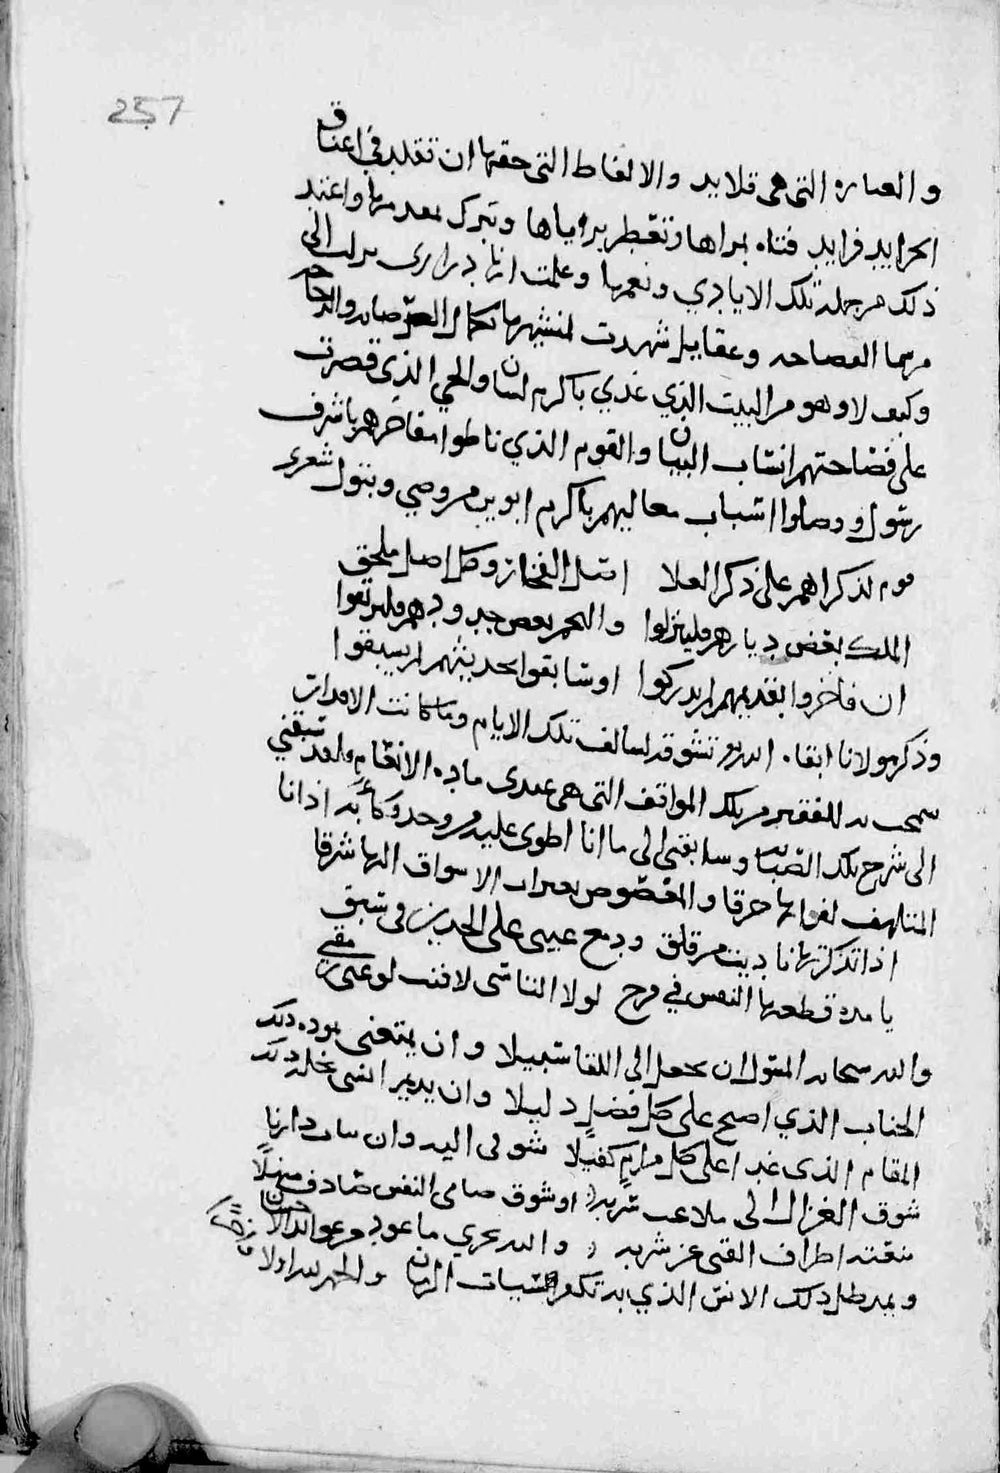 257
والعباره التي هي قلايد والالفاظ التي حقها ان تقلد في اعناق
الخرايد فرايد فتاه براها وتقطر برؤياها وتبرك بمقدمها واعتد
ذلك من جملة تلك الايادي ونعمها وعلمت انها دراري برزت الى
من سما الفصاحه وعقايل شهدت لمنشيها بكمال العز صانه والدحام
وكيف لا وهو من البيت الذي غذي باكرم لسان والحي الذي قصرت
على فصاحتهم انساب البيان والقوم الذي ناطوا مفاخرهم باشرف
رسول ووصلوا اسباب معاليهم باكرم ابوين من وصي وبتول شعر
قوم لذكراهم على ذكر العلا اصل الفخار وكل اصل ملحق
الملك بعض ديارهم فلينزلوا والبحر بعض جدودهم فليرتقوا
ان فاخروا بقديمهم لم يدركوا او سابقوا بحديثهم لم يسبقوا
وذكر مولانا ابقاه الله تشوقه لسالف تلك الايام وما كانت الاقدار
سمحت به للفقير من تلك المواقف التي هي عندي ماده الانعام ولقد سبقني
الى شرح تلك الصبابه وسابقني الى ما انا اطوي عليه من وجد وكأبه اذ انا
المتلهف لفواتها حرقا والمغصوص بعبرات الاشواق اليها شرقا
اذا تذكرتها نا ديت من قلق ودمع عيني على الخدين في سبق
يا مده قطعتها النفس في فرح لولا التاسي لافنت لوعتي رمقي
والله سبحانه المسؤل ان يجعل الى اللقا سبيلا وان يمتعني بوده ذلك
الجناب الذي اصبح على كل فضل دليلا وان يديم انسي بخله ذلك
المقام الذي غدا على كل مرام كفيلا شوقي اليه وان تنات دارنا
شوق الغزال الى ملاعب سربه او شوق ضامي النفس صادف منهلا
منعته اطراف القنى عن شربه والله يجري ما عود من عوايد الاحسان
ويمد ظل ذلك الانس الذي به تكفر سيات الزمان والحمد لله اولا